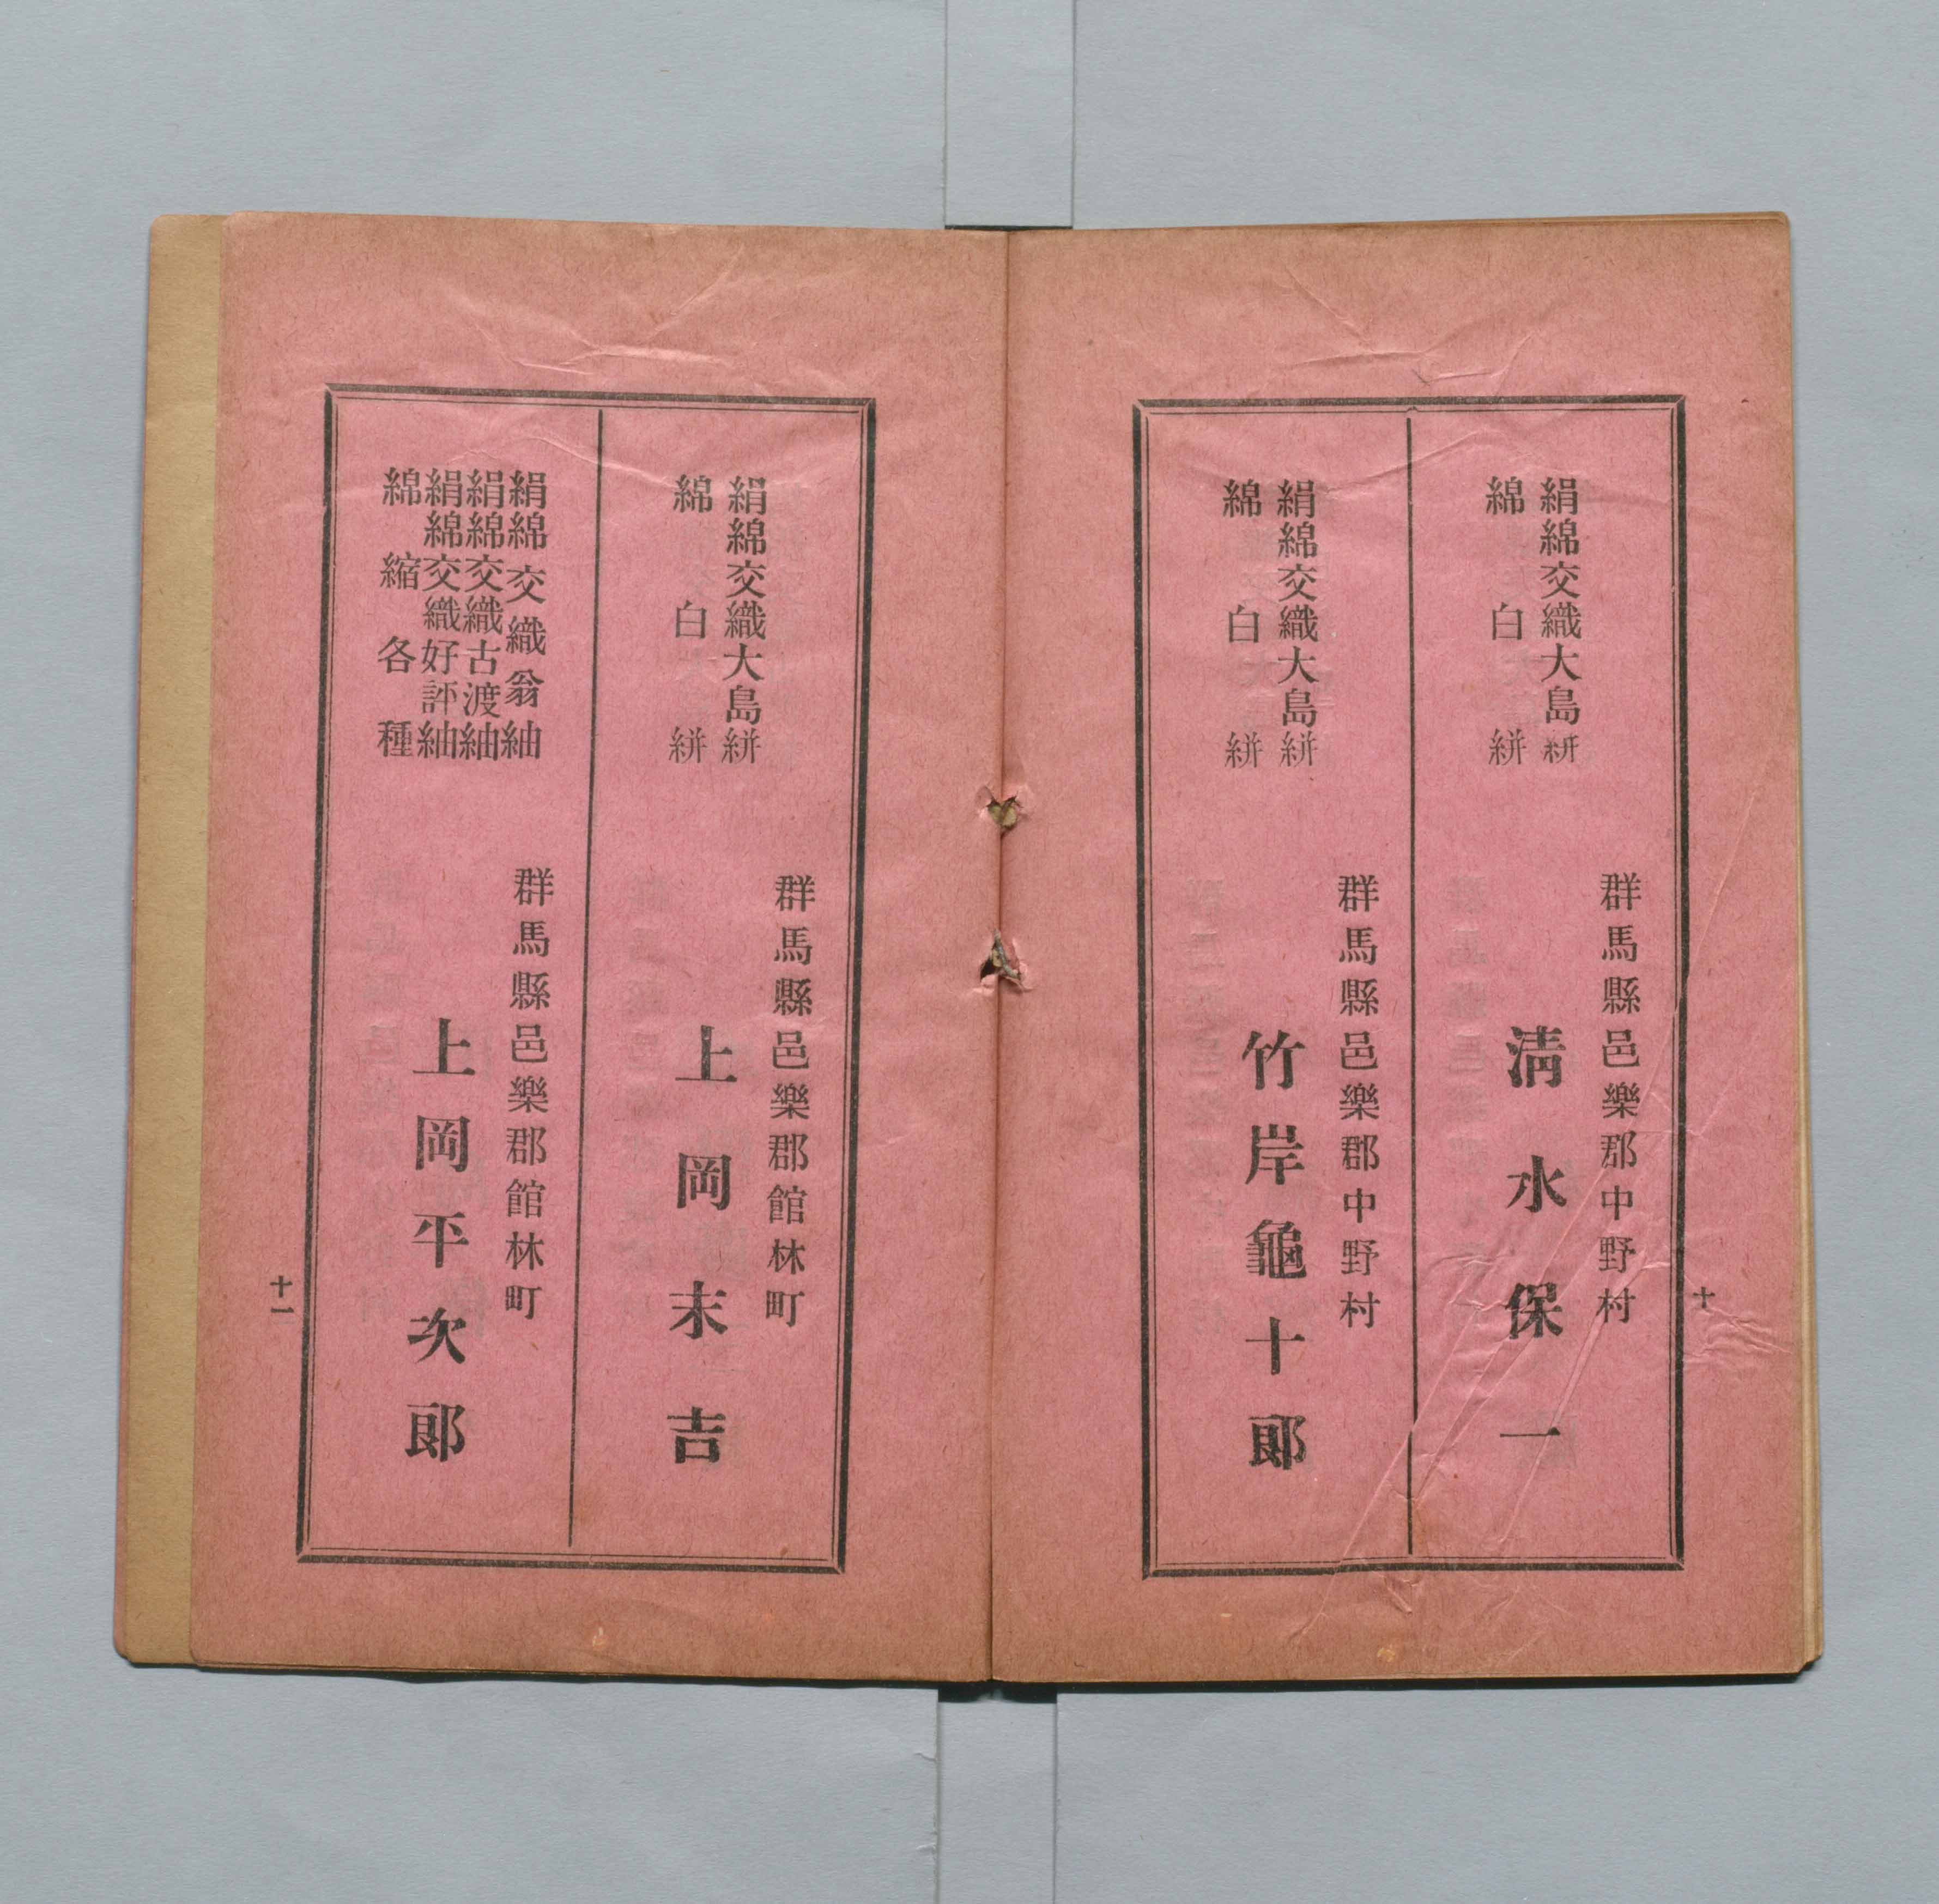 絹綿交織大島絣
綿白絣
群馬縣邑樂郡中野村
淸水保一
絹綿交織大島絣
綿白絣
群馬縣邑樂郡中野村
竹岸龜十郞
十
絹綿交織大島絣
綿白絣
群馬縣邑樂郡館林町
上岡末吉
絹綿交織翁紬
絹綿交織古渡紬
絹綿交織好評紬
綿縮各種
群馬縣邑樂郡館林町
上岡平次郞
十一